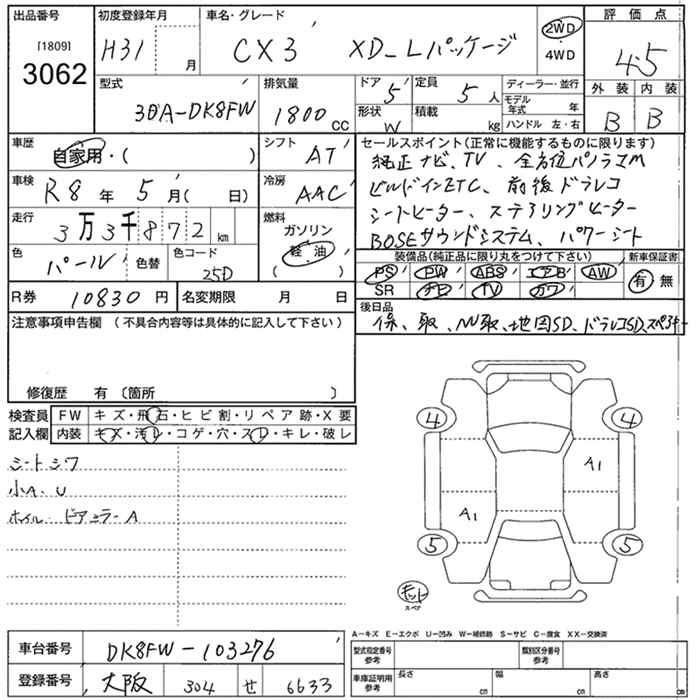 出品番号 初度登録年月 車名・グレード 評価点
[1809]
3062
H31 月
CX3 XD_Lパッケージ
2WD
・4WD
4.5
外装 内装
B B
型式 排気量 ドア 定員 ディーラー・並行
3DA-DK8FW 1800 CC
5 5人
形状 積載 モデル年式 年
W kg ハンドル 左・右
車歴 シフト
自家用・( ) AT
車検 冷房
R8年 5月( 日) AAC
走行 燃料
3万3千872km ガソリン
軽・油
( )
色 色替 色コード
パール 25D
R券 10830円 名変期限 月 日
セールスポイント(正常に機能するものに限ります)
純正ナビ、TV、全方位パノラマM
ビルドインETC、前後ドラレコ
シートヒーター、ステアリングヒーター
BOSEサウンドシステム、パワーシート
装備品(純正品に限り丸をつけて下さい) 新車保証書
PS PW ABS エアB AW 有・無
SR ナビ TV カワ
後日品
保、取、NV取、地図SD、ドラレコSD、スペアキー
注意事項申告欄(不具合内容等は具体的に記入して下さい)
修復歴 有〔箇所 〕
検査員 FW キズ・飛石・ヒビ割・リペア跡・X要
記入欄 内装 キズ・汚レ・コゲ・穴・スレ・キレ・破レ
シートシワ
小A、U
ホイル、ドアミラーA
4 4
A1
A1
5 5
キット
スペア
A-キズ E-エクボ U-凹み W-補修跡 S-サビ C-腐食 XX-交換済
車台番号 DK8FW-103276
登録番号 大阪 304 せ 6633
型式指定番号 参考 類別区分番号 参考
車庫証明用 参考 長さ cm 幅 cm 高さ cm